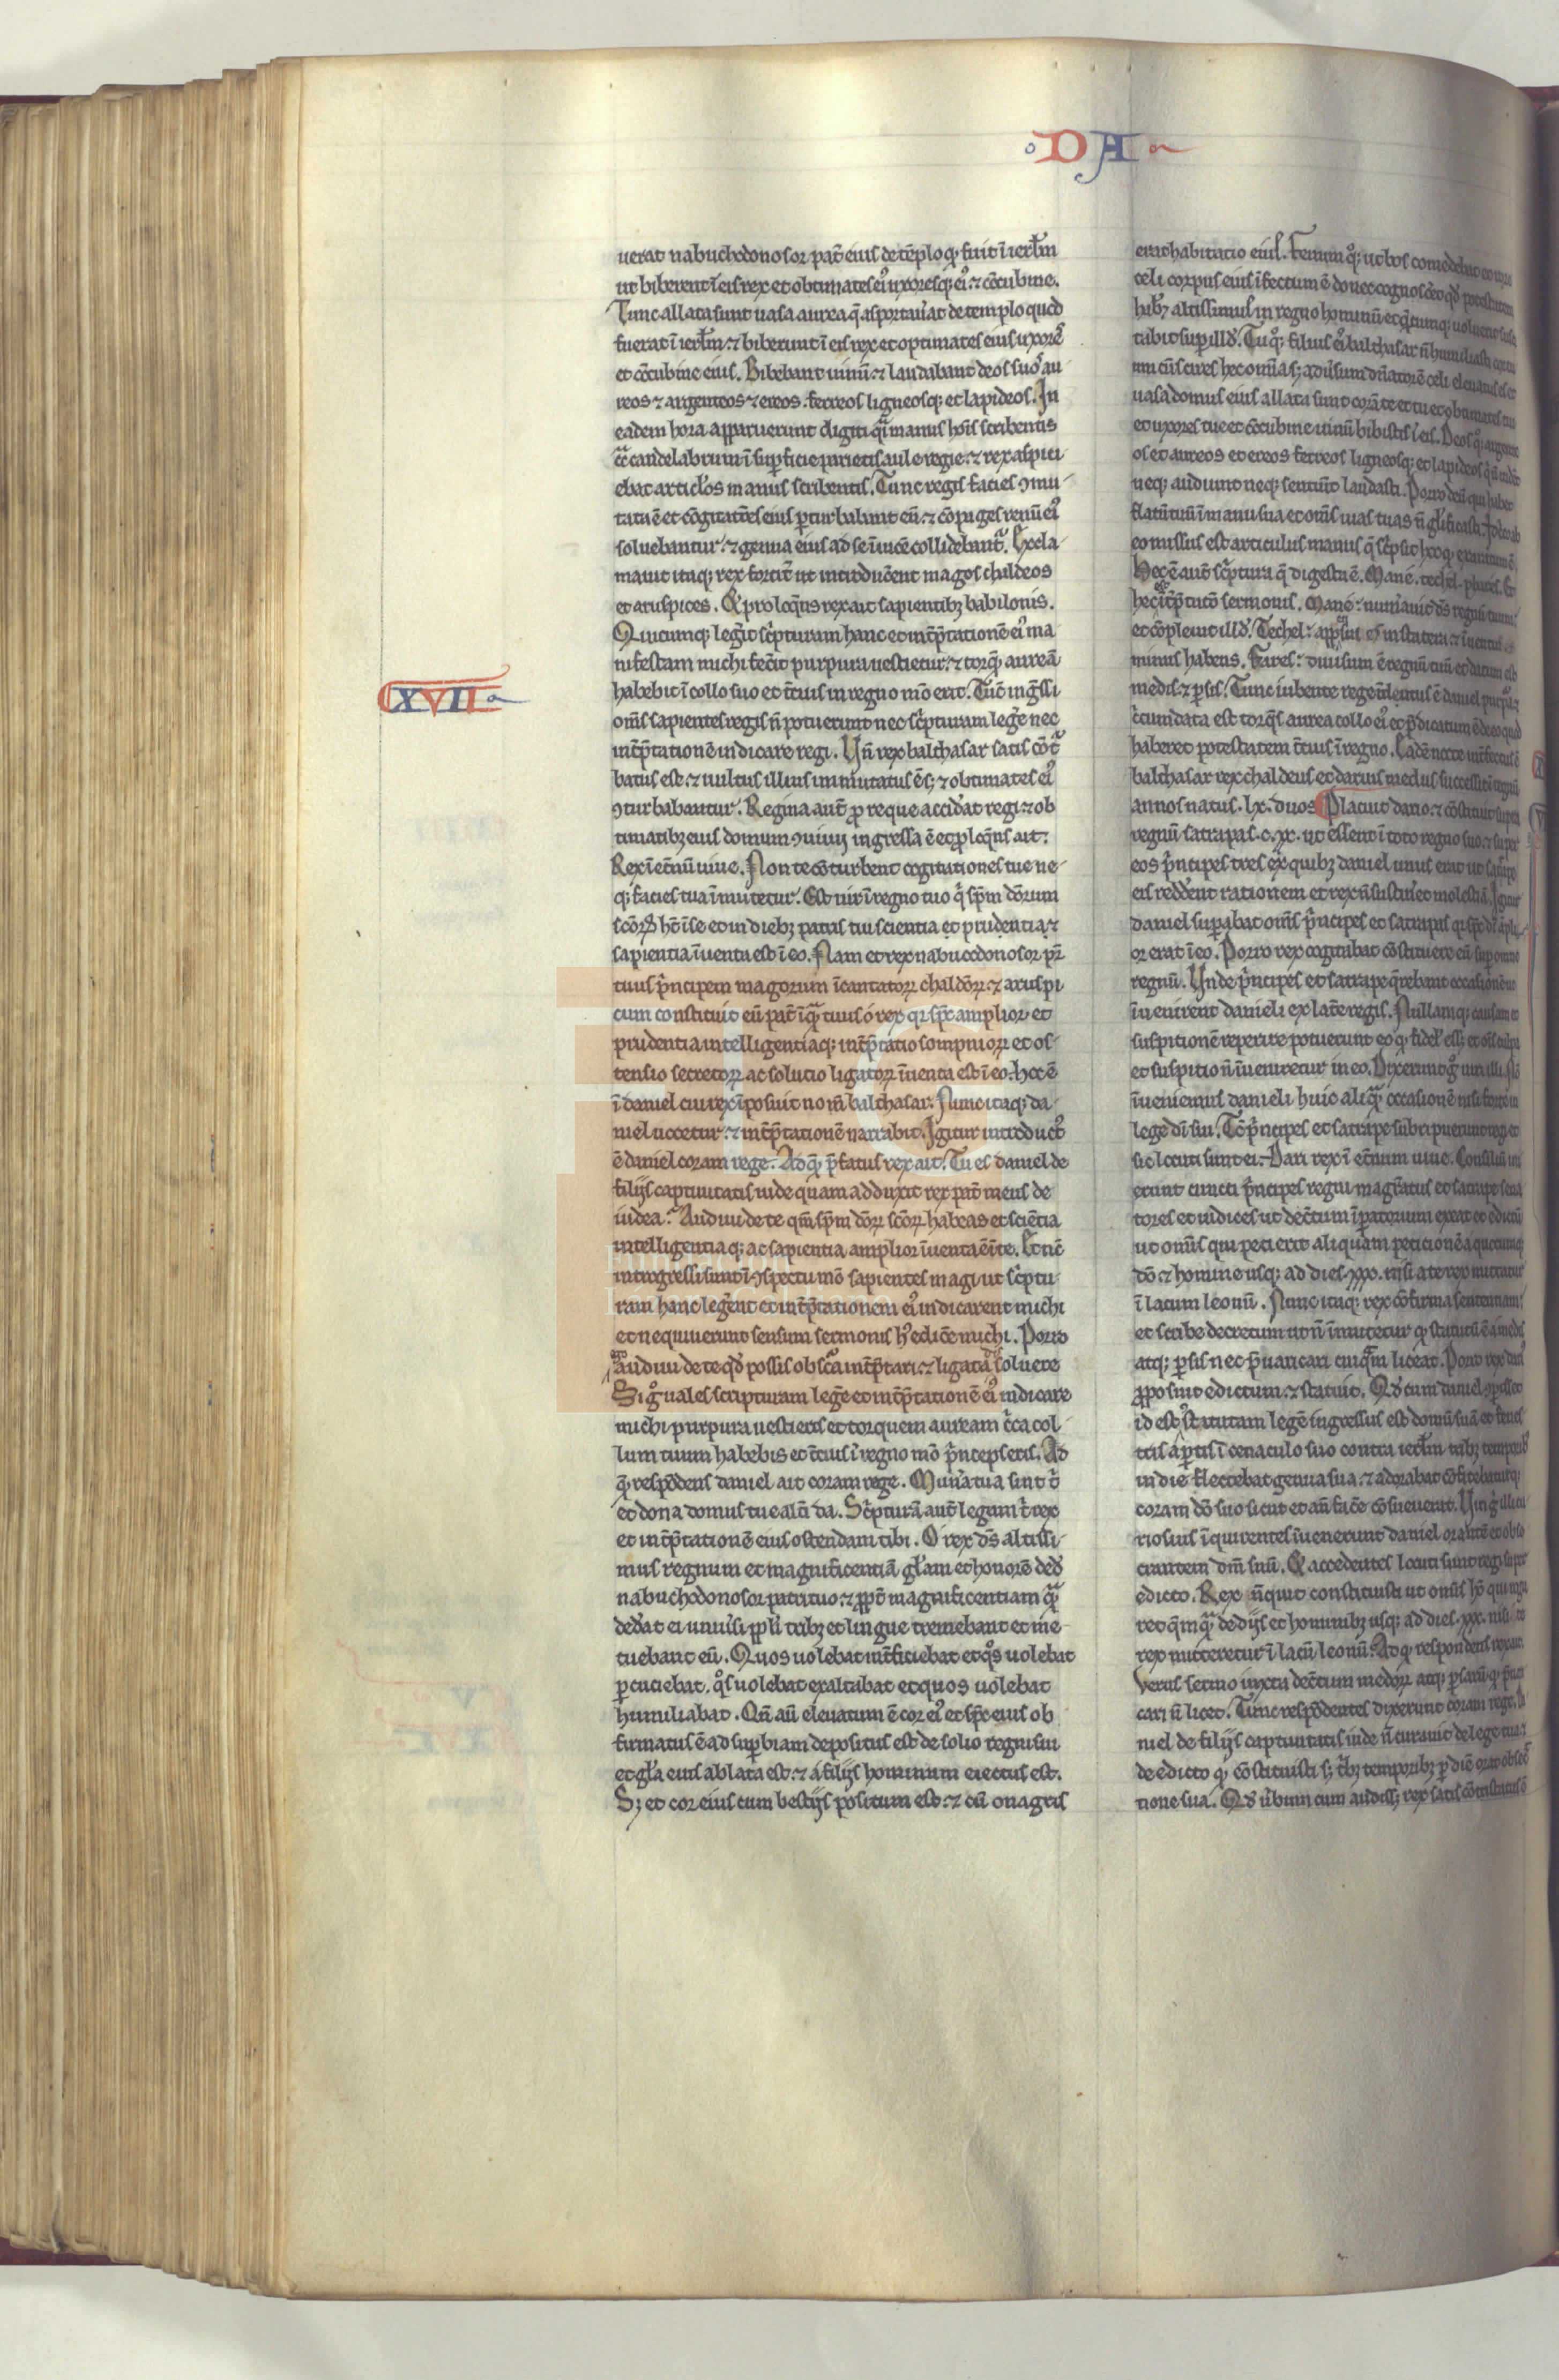 DA
uerat nabuchodonosor pat̃ eius de tẽplo qḋ fuit ĩ ierl̃m
ut biberent ĩ eis rex et obtimates eiꝰ uxoresq; eiꝰ ⁊ cõcubine.
Tunc allata sunt uasa aurea q̃ asportau̾at de templo quod
fuerat ĩ ierl̃m ⁊ biberunt ĩ eis rex et optimates eius uxores
et cõcubine eius. Bibebant uinũ ⁊ laudabant deos suos au
reos ⁊ argenteos ⁊ ereos. ferreos ligneosq; et lapideos. In
eadem hora apparuerunt digiti q̃i manus hoĩs scribentis
cͨ candelabrum ĩ suꝑficie parietis aule regie. ⁊ rex aspici
ebat articl̃os manus scribentis. Tunc regis facies ꝯmu
tata ẽ et cõgitatões eius ꝑturbabant eũ. ⁊ cõpages renũ eiꝰ
soluebantur. ⁊ genua eius ad se ĩuicẽ collidebant̃. Excla
mauit itaq; rex fortit̾ ut introducẽent magos chaldeos
et aruspices. Et proloq̃ns rex ait sapientibꝫ babilonis.
Quicumq; leg̾it sc̾pturam hanc et int̾p̃tationẽ eiꝰ ma
nifestam michi fec̾it purpura uestietur. ⁊ torq̃ aureã
CXVII
habebit ĩ collo suo et t̾cius in regno mõ erit. Tũc ing̃ssi
om̃s sapientes regis ñ potuerunt nec sc̾pturam leg̾e nec
int̾p̃tationẽ indicare regi. Vñ rex balthasar satis cõt̾
batus est. ⁊ uultus illius immutatus ẽ. s; ⁊ obtimates eiꝰ
ꝯturbabantur. Regina aut̃ ꝓ re que accid̾at regi ⁊ ob
timatibꝫ eius domum ꝯuiuij ingressa ẽ et ꝓloq̃ns ait.
Rex ĩ et̾nũ uiue. Non te cõturbent cogitationes tue ne
q; facies tua ĩmutetur. Est uir ĩ regno tuo q̾ sp̃m dõrum
scõꝝ ht̃ ĩ se et in diebꝫ patris tui scientia et prudentia ⁊
sapientia ĩuenta est ĩ eo. Nam et rex nabuccodonosor pr̃
tuus p̾ncipem magorum ĩcantatoꝝ chaldeoꝝ ⁊ aruspi
cum constituit eũ pat̃ ĩq̃ tuus o rex qr sp̃c amplior et
prudentia intelligentiaq; int̾p̃tatio sompnioꝝ et os
tensio secretoꝝ ac solutio ligatoꝝ ĩuenta est ĩ eo. hoc ẽ
ĩ daniel cui rex ĩposuit nom̃ balthasar. Nunc itaq; da
niel uocetur. ⁊ int̾p̃tationẽ narrabit. Igitur introductꝰ
ẽ daniel coram rege. Ad q̃ p̃fatus rex ait. Tu es daniel de
filijs captiuitatis iude quam adduxit rex pat̃ meus de
iudea. Audiui de te qm̃ sp̃m dõꝝ scõꝝ habeas et sciẽtia
intelligentiaq; ac sapientia amplior ĩuenta ẽ ĩ te. Et nc̃
introgressi sunt ĩ ꝯspectu mõ sapientes magi ut sc̾ptu
ram hanc leg̾ent et int̾p̃tationem eiꝰ indicarent michi
et nequiuerunt sensum sermonis hꝰ edic̾e michi. Porro
audiui de te qḋ possis obsc̾a int̾p̃tari ⁊ ligata soluere
Si gͦ uales scripturam leg̾e et int̾p̃tationẽ eiꝰ indicare
michi purpura uestieris et torquem auream c̾ca col
lum tuum habebis et t̾cius ĩ regno mõ p̾nceps eris. Ad
q̃ respõdens daniel ait coram rege. Mun̾a tua sint t̾
et dona domus tue alt̾i da. Sc̾pturã aut̃ legam t̾ rex
et int̾p̃tationẽ eius ostendam tibi. O rex dš altissi
mus regnum et magnificentiã gl̃am et honorẽ ded̾
nabuchodonosor patri tuo. ⁊ ꝓpt̾ magnificentiam q̃
ded̾at ei uniu̾si ppl̃i tribꝫ et lingue tremebant et me
tuebant eũ. Quos uolebat int̾ficiebat et qͦs uolebat
ꝑcuciebat. qͦs uolebat exaltabat et quos uolebat
humiliabat. Qñ aũ eleuatum ẽ cor eiꝰ et sp̃c eius ob
firmatus ẽ ad suꝑbiam depositus est de solio regni sui
et gl̃a eius ablata est. ⁊ a filijs hominum eiectus est.
S; et cor eius cum bestijs positum est. ⁊ cũ onagris
erat habitatio eius. Fenum q; ut bos comedebat
celi corpus eius ĩfectum ẽ donec cognosc̾et qḋ potestatem
altissimus in regno hominũ et q̃cumq; uolu̾it
suꝑ illḋ. Tu q; filius eiꝰ balthasar ñ humiliasti
cũ scires hec om̃ia s; adu̾sum dñatorẽ celi eleuatus es et
uasa domus eius allata sunt corã te et tu et obtimates tui
et uxores tue et cõcubine uinũ bibistis ĩ eis. Deos q; argente
os et aureos et ereos ferreos ligneosq; et lapideos
neq; audiunt neq; sentiũt laudasti. Porro deũ qui habet
flatũ tuũ ĩ manu sua et om̃s uias tuas ñ gl̃ificasti. Idcirco ab
eo missus est articulus manus q̃ sc̾psit hoc qḋ exaratum ẽ.
Hec ẽ aut̃ sc̾ptura q̃ digesta ẽ. Mane. techel. phares. Et
hec int̾p̃tatio sermonis. Mane. num̾auit dš regnũ tuum
et cõpleuit illḋ. Techel. appẽsus es in statera ⁊ ĩuentus es
minus habens. Fares. diuisum ẽ regnũ tuũ et datum est
medis. ⁊ ꝑsis. Tunc iubente rege ĩdutus ẽ daniel purpura
c̾cumdata est torq̃s aurea collo eiꝰ et p̃dicatum ẽ de eo quod
haberet potestatem t̾cius ĩ regno. Eadẽ nocte int̾fectus ẽ
balthasar rex chaldeus et darius medus successit ĩ regnũ
annos natus. lx. duos. Placuit dario. ⁊ cõstituit super
regnũ satrapas. c. xx. ut essent ĩ toto regno suo. ⁊ super
eos p̾ncipes tres ex quibꝫ daniel unus erat ut satrape
eis redd̾ent rationem et rex ñ sustin̾et molestiã. Igitur
daniel suꝑabat om̃s p̾ncipes et satrapas qr sp̃c dĩ ampli
or erat ĩ eo. Porro rex cogitabat cõstituere eũ suꝑ omne
regnũ. Vnde p̾ncipes et satrape q̃rebant occasionẽ ut
ĩuenirent danieli ex lat̾e regis. Nullamq; causam et
suspitionẽ reperire potuerunt eo qḋ fidel̾ ess; et om̃s culpa
et suspitio ñ ĩueniretur in eo. Dixerunt gͦ uiri illi. Nõ
ĩueniemus danieli huic aliq̃ occasionẽ nisi forte in
lege dĩ sui. Tc̃ p̾ncipes et satrape surripuerunt regi et
sic locuti sunt ei. Dari rex ĩ et̾num uiue. Consiliũ ini
erunt cuncti p̾ncipes regni magr̃atus et satrape sena
tores et iudices ut dec̾tum ĩꝑatorium exeat et edictũ
ut omĩs qui petierit aliquam peticionẽ a quocumq;
dõ ⁊ homine usq; ad dies. xxx. nisi a te rex mittatur
ĩ lacum leonũ. Nunc itaq; rex cõfirma sententiam
et scribe decretum ut ñ ĩmutetur qḋ statutũ ẽ a medis
atq; ꝑsis nec p̃uaricari cuiq̃m liceat. Porro rex dariꝰ
ꝓposuit edictum. ⁊ statuit. Qḋ cum daniel ꝯꝑisset
id est ꝯstitutam legẽ ingressus est domũ suã et fenes
tris aꝑtis ĩ cenaculo suo contra ierl̃m tribꝫ temporibꝫ
in die flectebat genua sua. ⁊ adorabat cõfitebaturq;
coram dõ suo sicut et añ fac̾e cõsueuerat. Viri gͦ illi cu
riosius ĩquirentes ĩuenerunt daniel orantẽ et obse
crantem dñm suũ. Et accedentes locuti sunt regi super
edicto. Rex nũquit constituisti ut omĩs hõ qui roga
ret q̃mq̃ de dijs et hominibꝫ usq; ad dies. xxx. nisi te
rex mitteretur ĩ lacũ leonũ. Ad q̃ respondens rex ait.
Verus sermo iuxta dec̾tum medoꝝ atq; ꝑsarũ qḋ p̃uari
cari ñ licet. Tunc respõdentes dixerunt coram rege. Da
niel de filijs captiuitatis iude ñ curauit de lege tua. ⁊
de edicto qḋ cõstituisti s; t̾bꝫ temporibꝫ ꝑ diẽ orat obsec̾
tione sua. Qḋ u̾bum cum audiss; rex satis cõtristatus ẽ